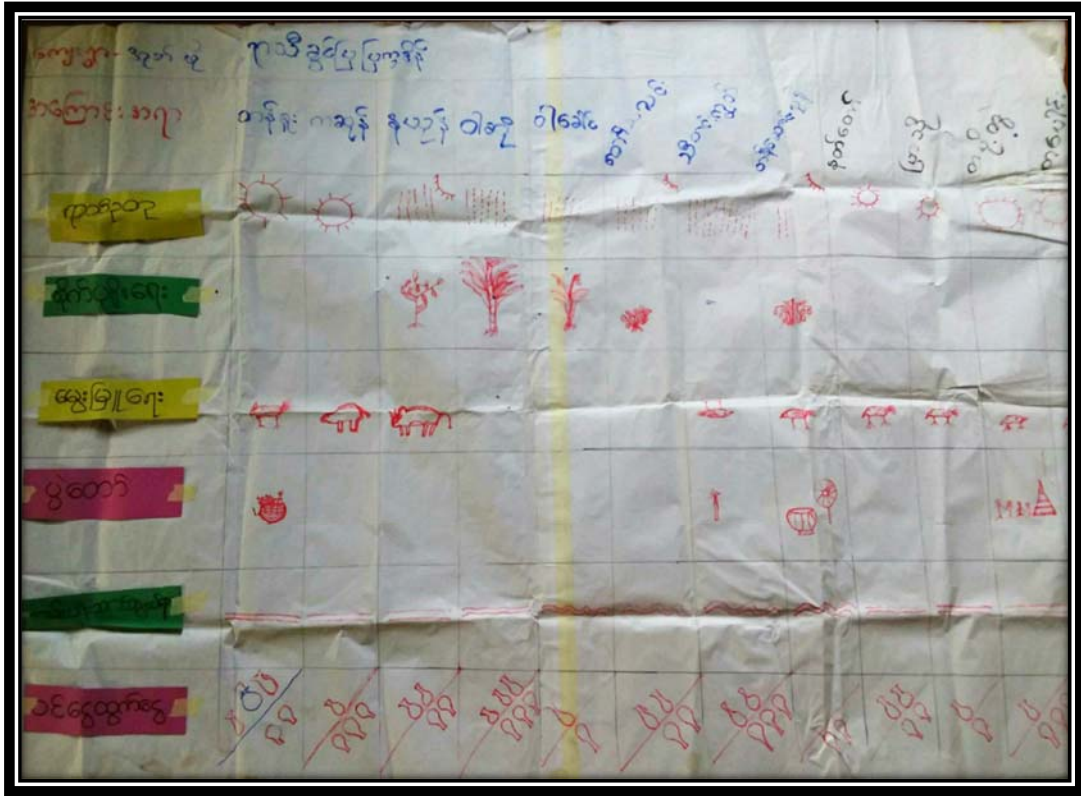 ကျေးရွာ - အုတ် ဖို ရာသီခွင်ပြပြက္ခဒိန်
အကြောင်းအရာ တန်ခူး ကဆုန် နယုန် ဝါဆို ဝါခေါင် တော်သလင်း သီတင်းကျွတ် တန်ဆောင်မုန်း နတ်တော် ပြာသို တပို့တွဲ တပေါင်း
ရာသီဥတု
စိုက်ပျိုးရေး
မွေးမြူရေး
ပွဲတော်
ဝင်ငွေထွက်ငွေ